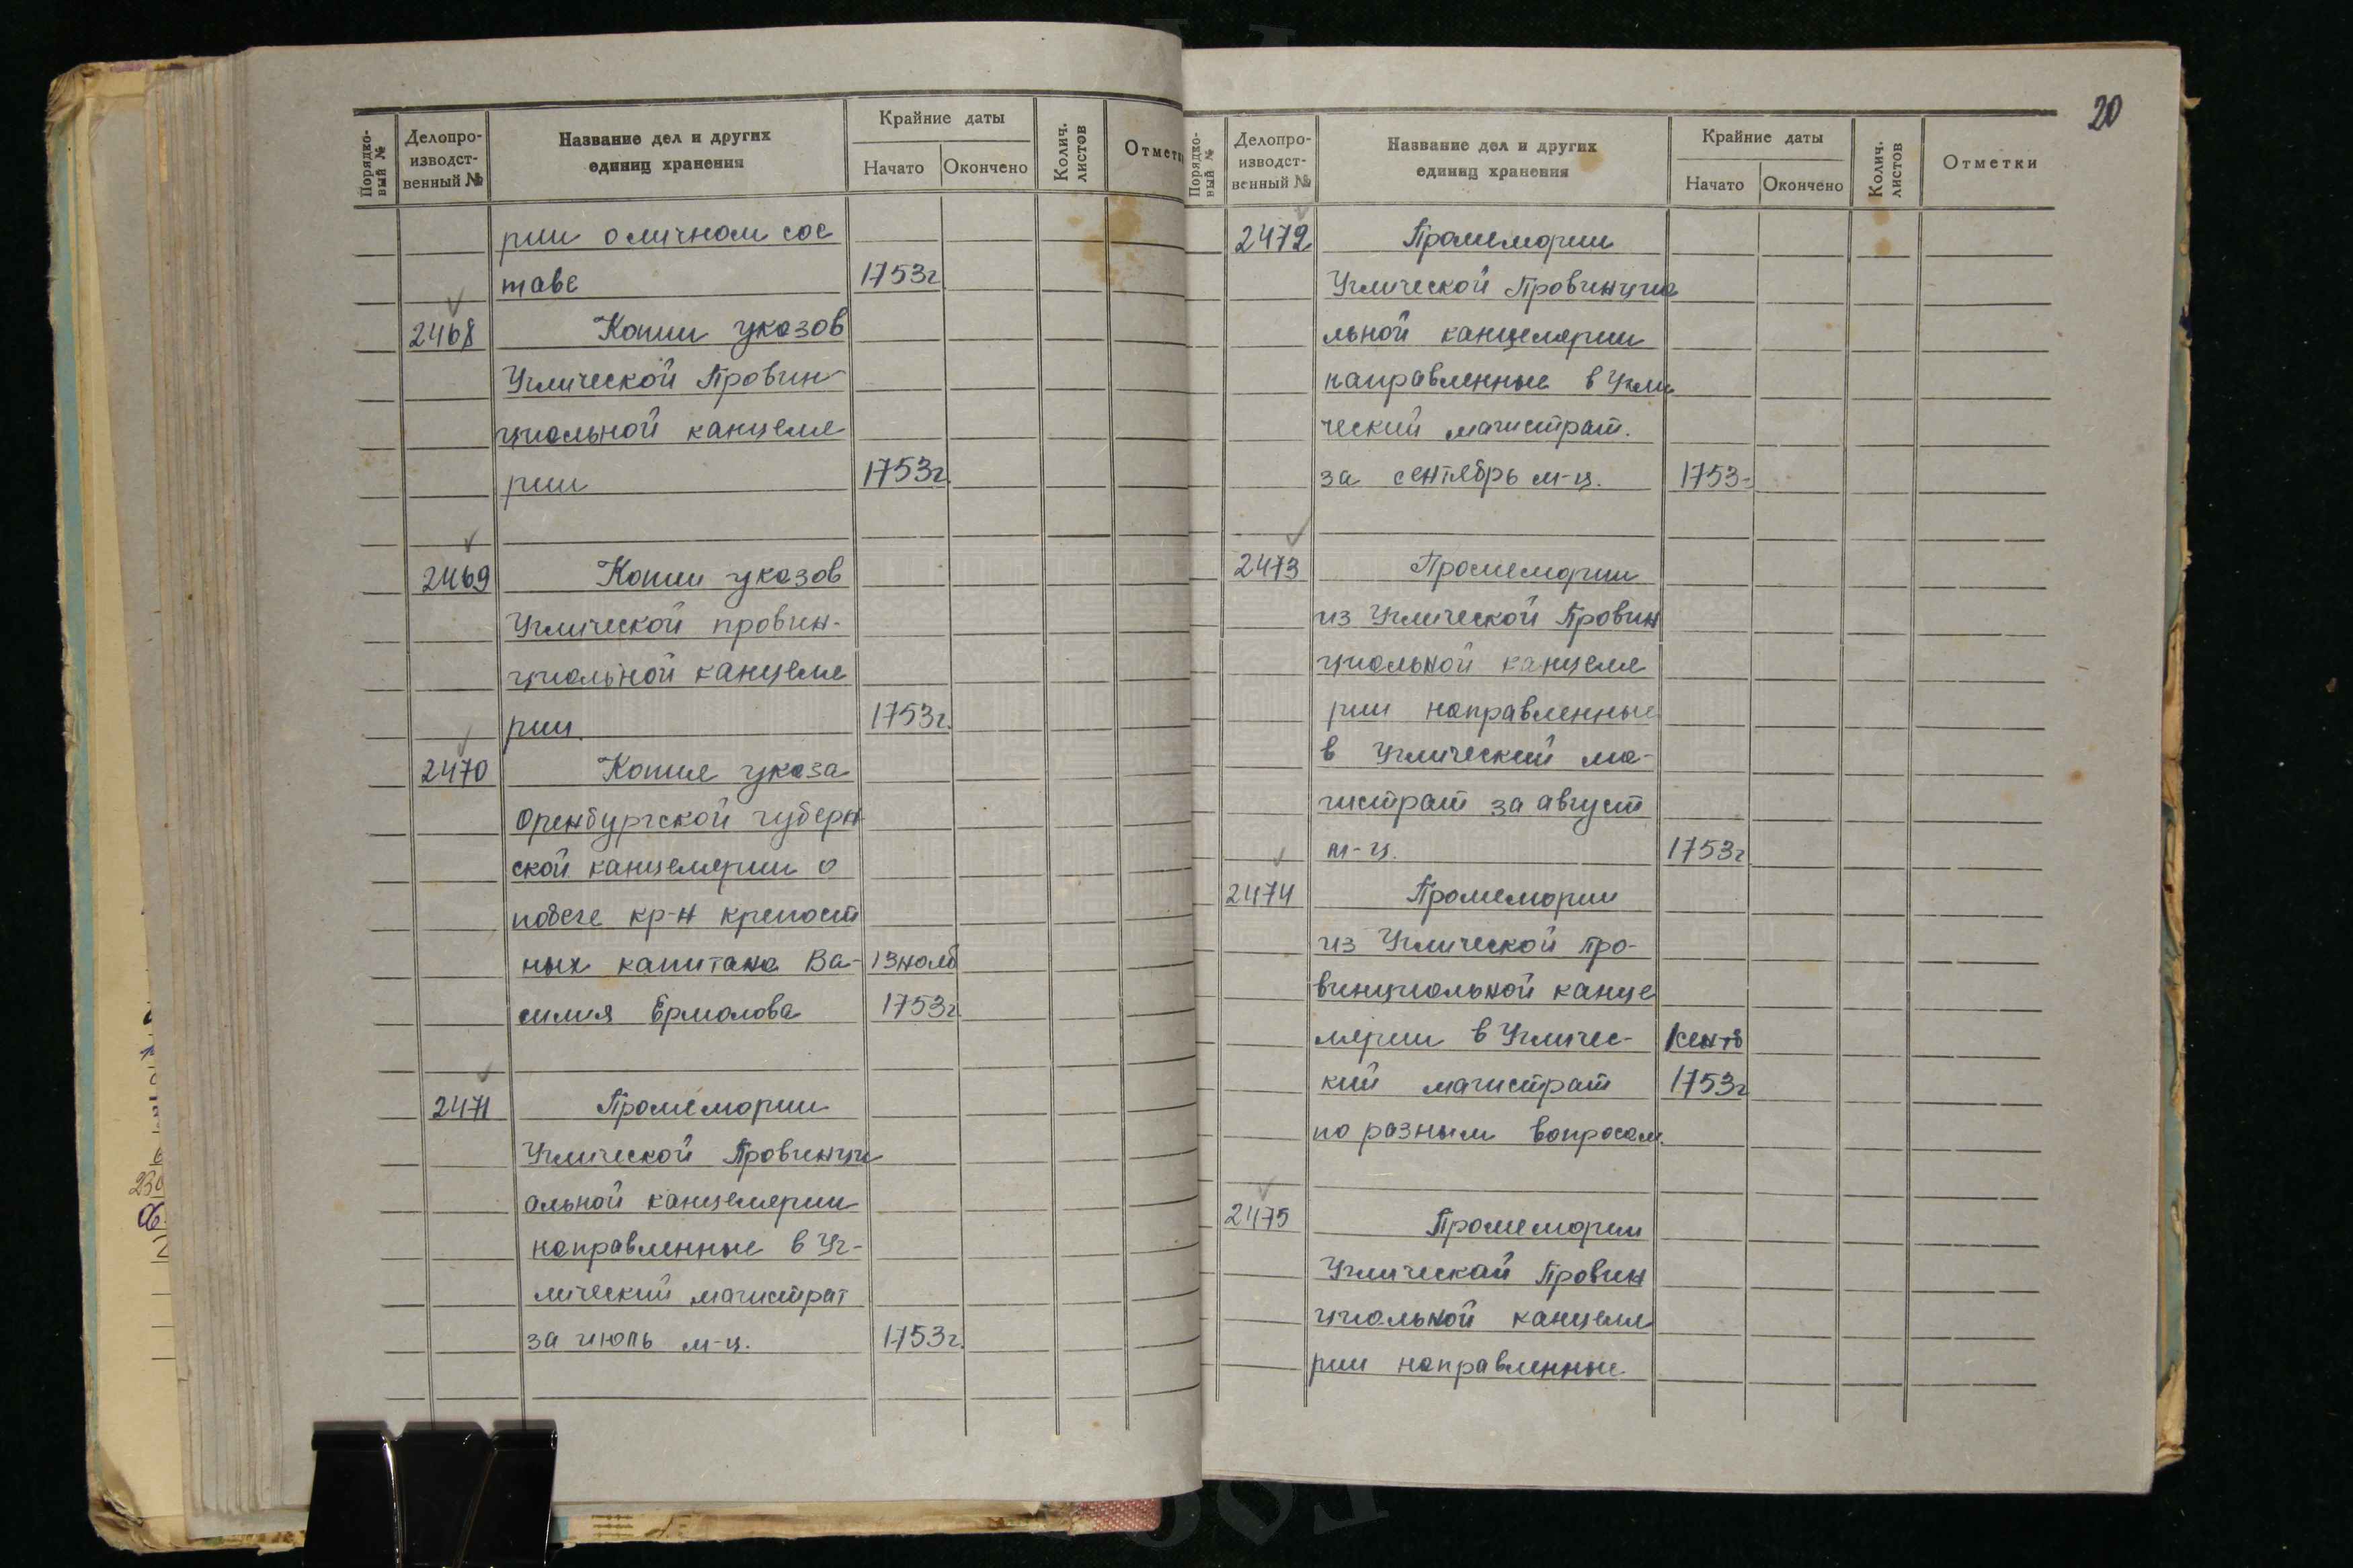 Порядковый №
Делопроизводственный №
Название дел и других единиц хранения
Крайние даты
Начато
Окончено
Колич. листов
Отметк
рии о личном сос
таве 1753г
2468 Копии указов
Угличской Провин-
циальной канцеля
рии 1753г.
2469 Копии указов
Угличской провин-
циальной канцеля
рии. 1753г.
2470 Копия указа
Оренбургской губерн
ской канцелярии о
побеге кр-н крепост
ных капитана Ва- 13 нояб
силия Ермолова 1753г
2471 Промемории
Угличской Провинци
альной канцелярии
направленные в Уг-
личский магистрат
за июль м-ц. 1753г.
20
Порядковый №
Делопроизводственный №
Название дел и других единиц хранения
Крайние даты
Начато
Окончено
Колич. листов
Отметки
2472 Промемории
Угличской Провинциа
льной канцелярии
направленные в Угли
ческий магистрат.
за сентябрь м-ц. 1753-
2473 Промемории
из Угличской Провин
циальной канцеля
рии направленные
в Угличский ма-
гистрат за август
м-ц. 1753г
2474 Промемории
из Угличской про-
винциальной канце
лярии в Угличес-
кий магистрат 1753г
по разным вопросам.
2475 Промемории
Угличской Провин
циальной канцеля
рии направленные